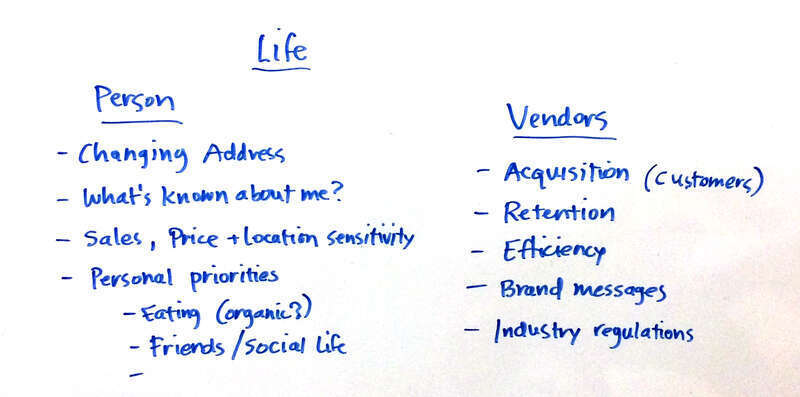 Life
Person
- Changing Address
- What's known about me?
- Sales, Price + Location sensitivity
- Personal priorities
- Eating (organic?)
- Friends / Social Life
-
Vendors
- Acquisition (customers)
- Retention
- Efficiency
- Brand messages
- Industry regulations